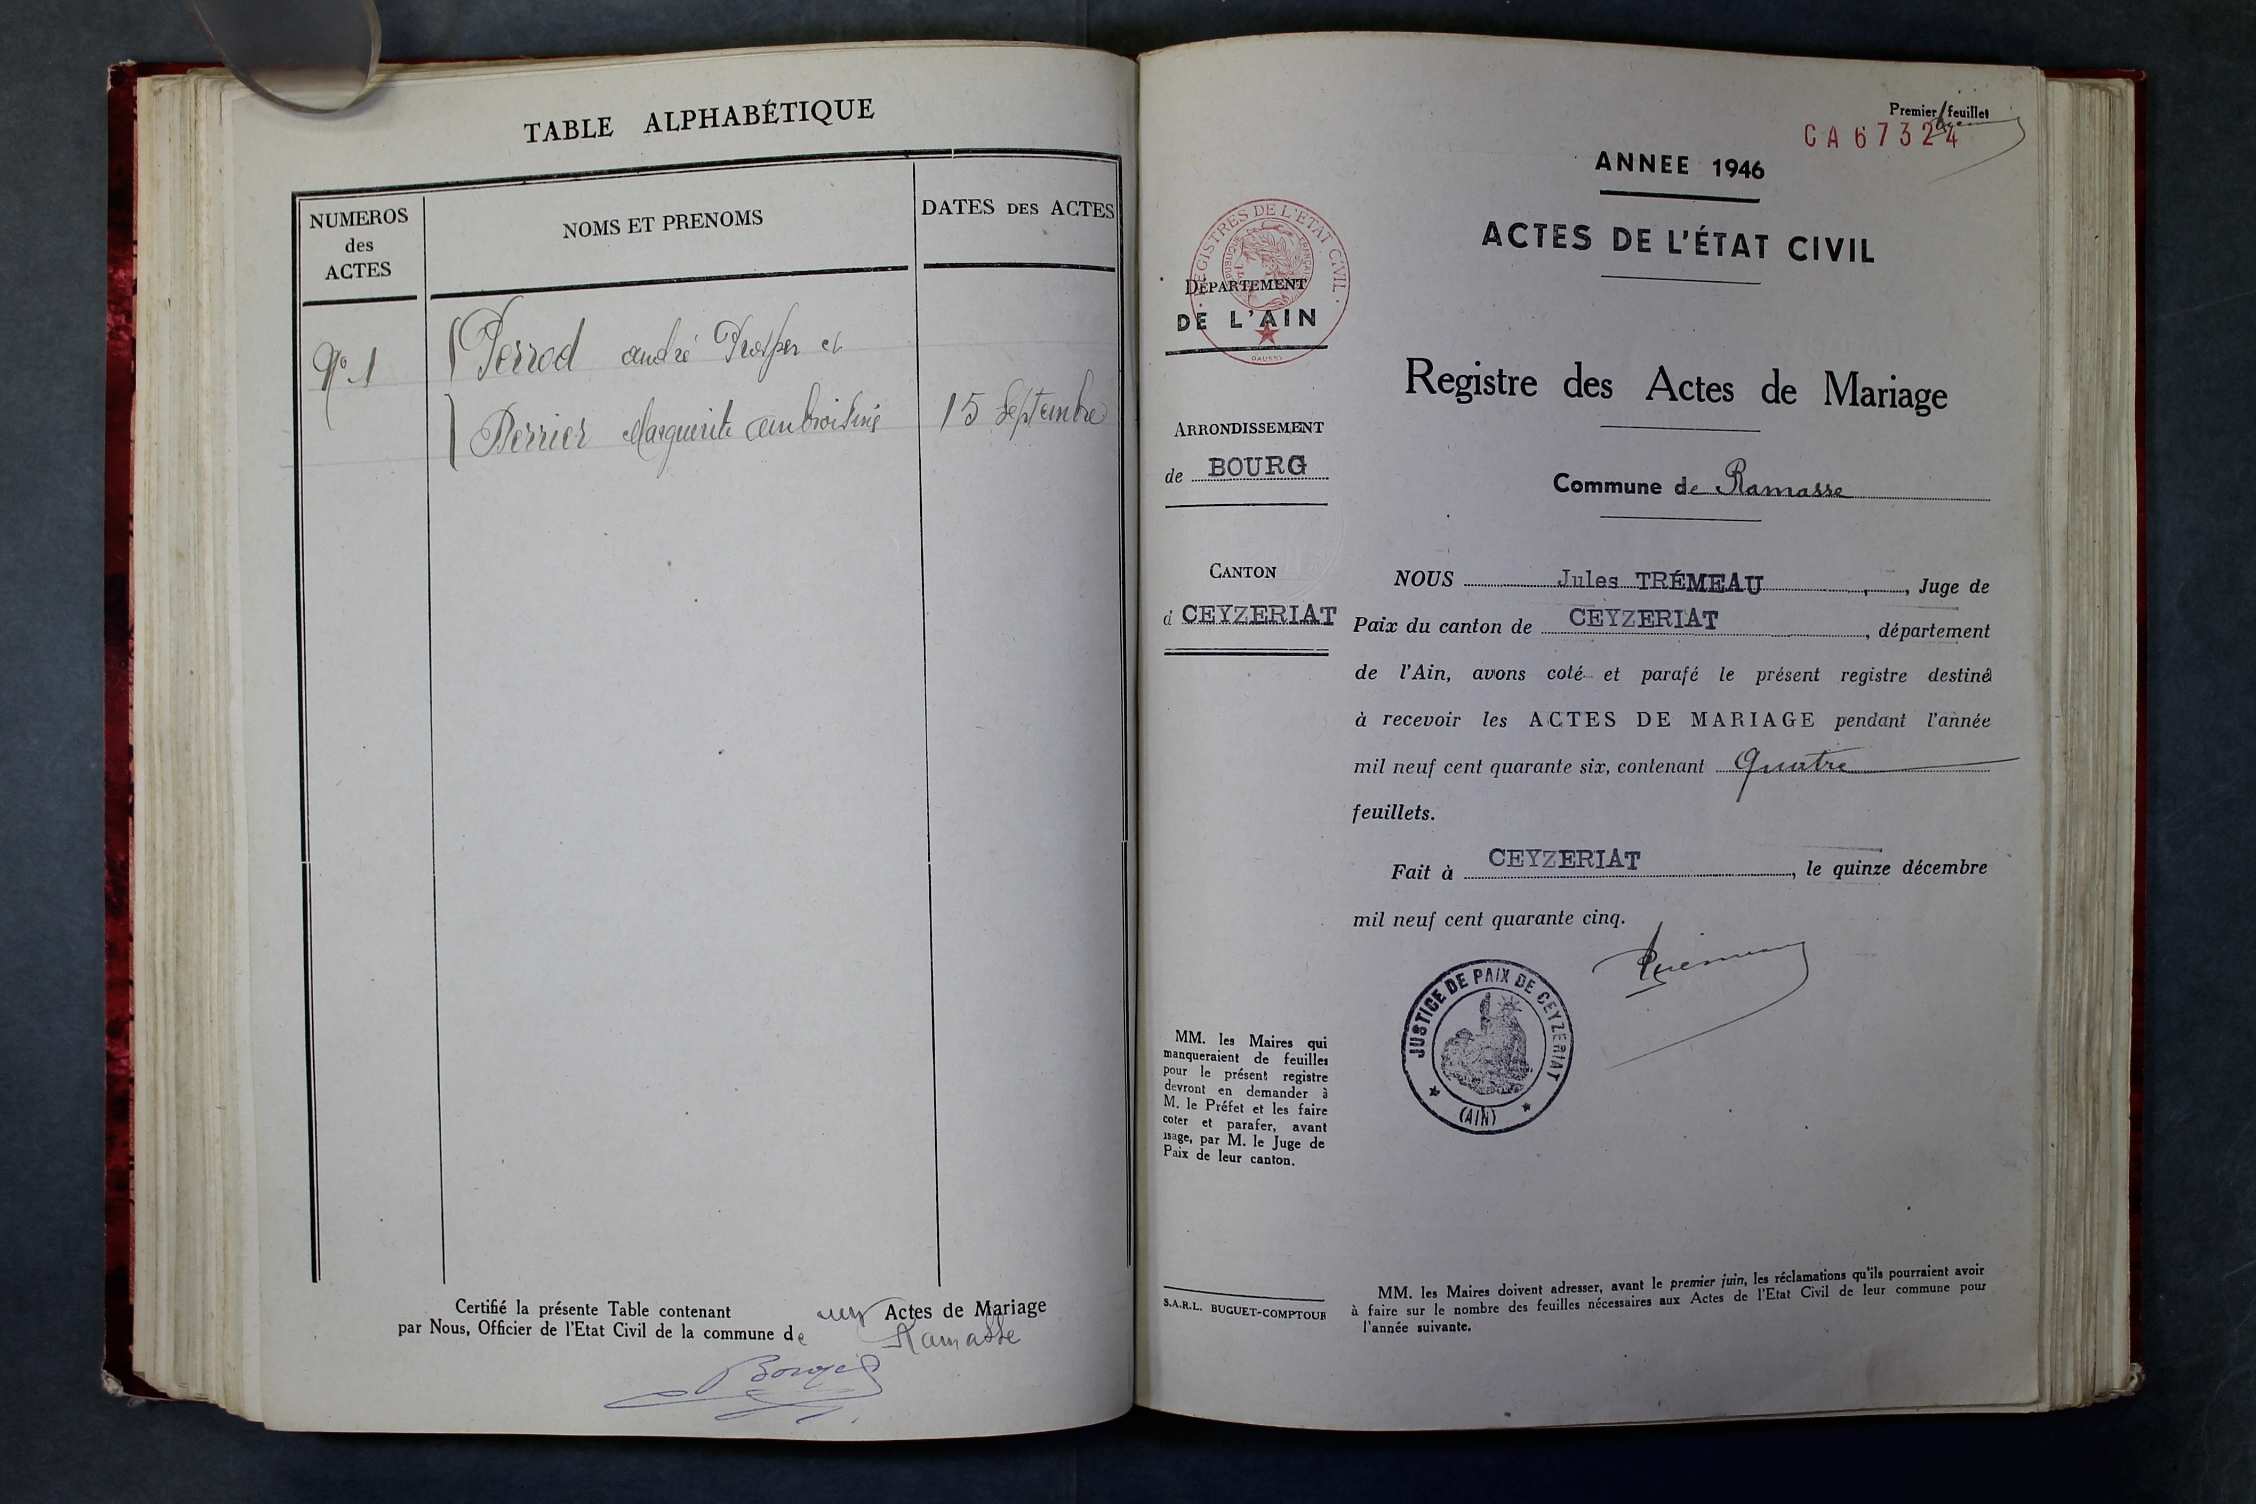 TABLE ALPHABÉTIQUE
NUMEROS
des
ACTES
NOMS ET PRENOMS
DATES DES ACTES
Nº 1
Perrod andré Prosper et
Perrier Marguerite ambroisine
15 Septembre
Certifié la présente Table contenant un Actes de Mariage
par Nous, Officier de l'Etat Civil de la commune de Ramasse
Premier feuillet
CA 67324
ANNEE 1946
ACTES DE L'ÉTAT CIVIL
REGISTRES DE L'ETAT CIVIL
REPUBLIQUE FRANÇAISE
DÉPARTEMENT
DE L'AIN
Registre des Actes de Mariage
ARRONDISSEMENT
de BOURG
Commune de Ramasse
CANTON
d CEYZERIAT
NOUS Jules TRÉMEAU, Juge de
Paix du canton de CEYZERIAT, département
de l'Ain, avons coté et parafé le présent registre destiné
à recevoir les ACTES DE MARIAGE pendant l'année
mil neuf cent quarante six, contenant Quatre
feuillets.
Fait à CEYZERIAT, le quinze décembre
mil neuf cent quarante cinq.
JUSTICE DE PAIX DE CEYZERIAT
(AIN)
MM. les Maires qui
manqueraient de feuilles
pour le présent registre
devront en demander à
M. le Préfet et les faire
coter et parafer, avant
usage, par M. le Juge de
Paix de leur canton.
S.A.R.L. BUGUET-COMPTOUR
MM. les Maires doivent adresser, avant le premier juin, les réclamations qu'ils pourraient avoir
à faire sur le nombre des feuilles nécessaires aux Actes de l'Etat Civil de leur commune pour
l'année suivante.